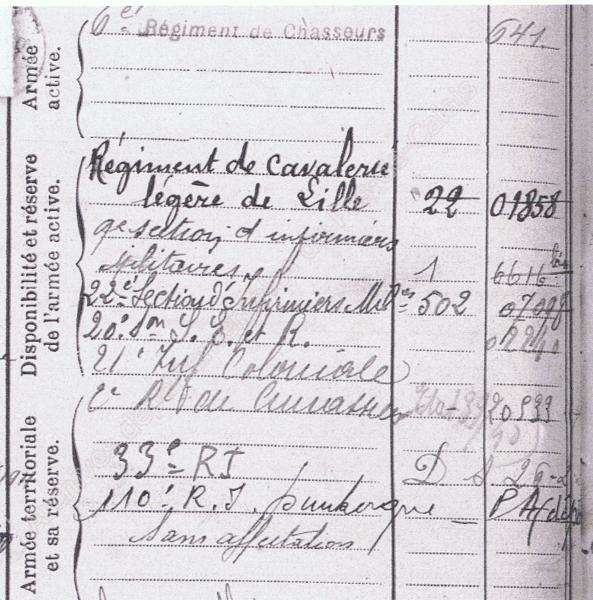 Armée active.
6e Régiment de Chasseurs 641.
Disponibilité et réserve de l'armée active.
Régiment de cavalerie
légère de Lille 22 01858
9e section d'infirmiers
militaires 1 6616 bis
22e Section d'Infirmiers Mil res 502
20e S. E. et R.
21e Inf Coloniale
2e 20933
Armée territoriale et sa réserve.
33e RI D
110e R.I. Dunkerque
Sans affectation